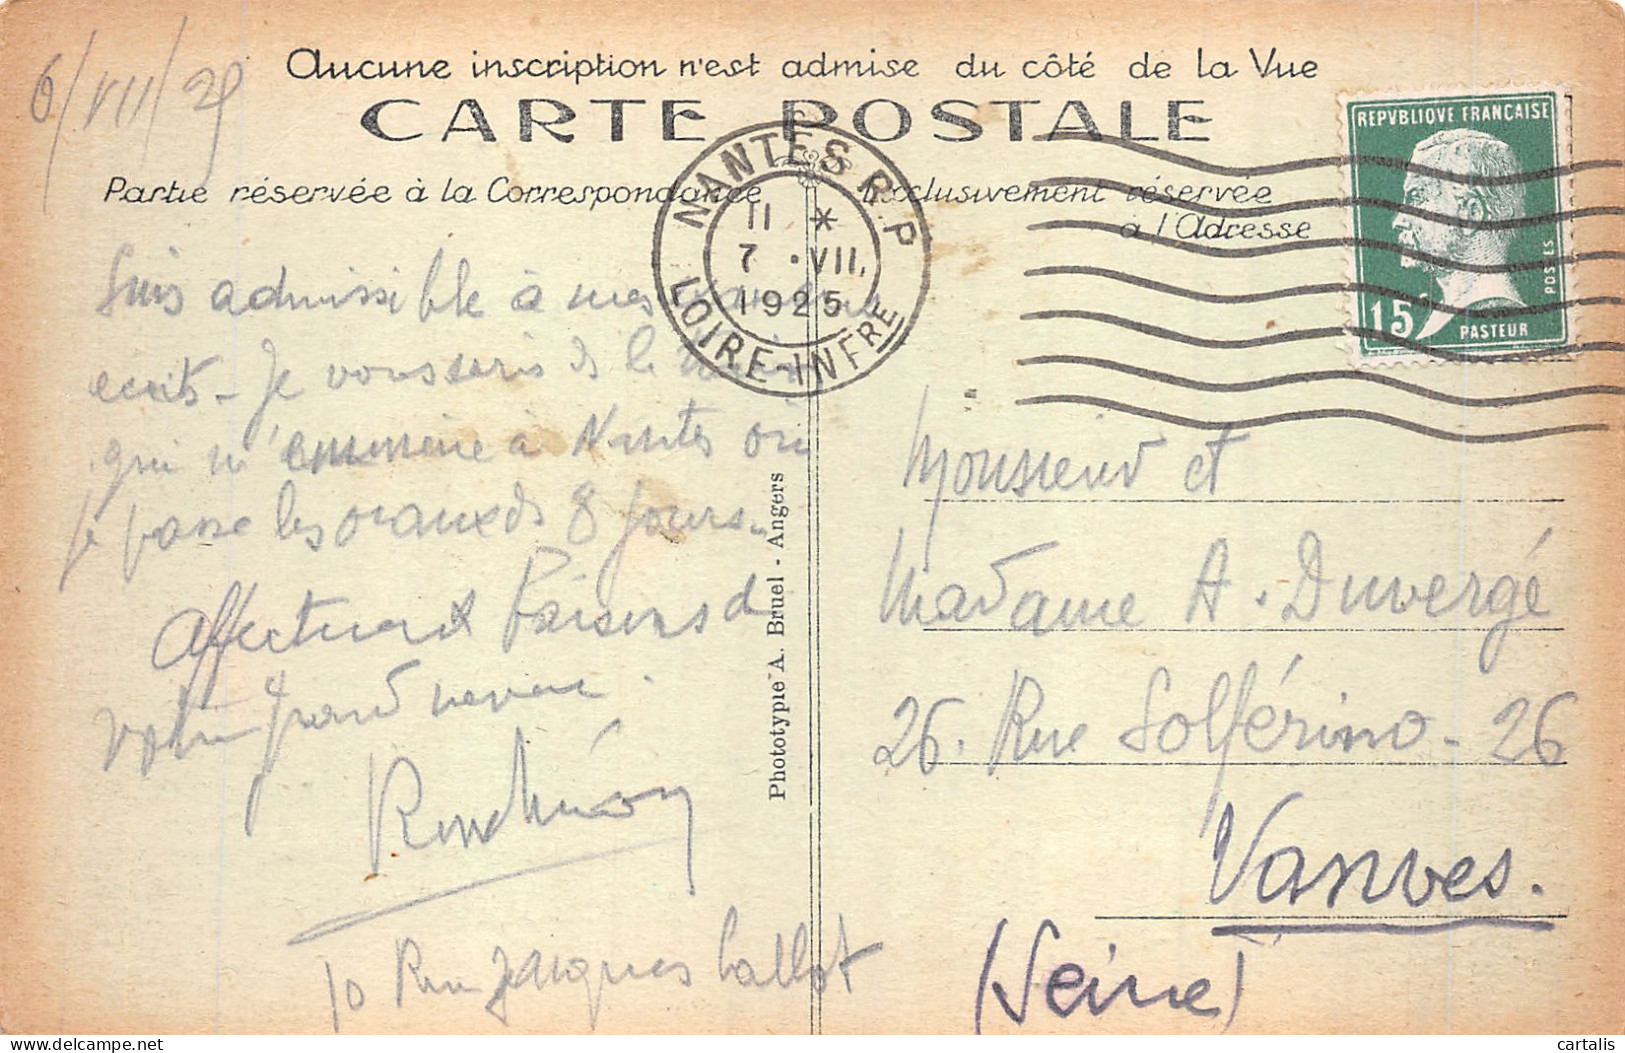 6/VII/25
Aucune inscription n'est admise du côté de la Vue
CARTE POSTALE
Partie réservée à la Correspondance
Exclusivement réservée
à l'Adresse
REPVBLIQVE FRANÇAISE
15c
POSTES
PASTEUR
NANTES R.P
11 *
7 . VII.
1925
LOIRE-INFRE
Suis admissible à mes
écrits - Je vous écris de le train
qui m'emmène à Nantes où
je passe les oraux ds 8 jours -
Affectueux Baisers d
votre grand neveu.
10 Rue Jacques Callot
Phototypie A. Bruel - Angers
Monsieur et
Madame A. Duvergé
26. Rue Solférino - 26
Vanves.
(Seine)
cartalis